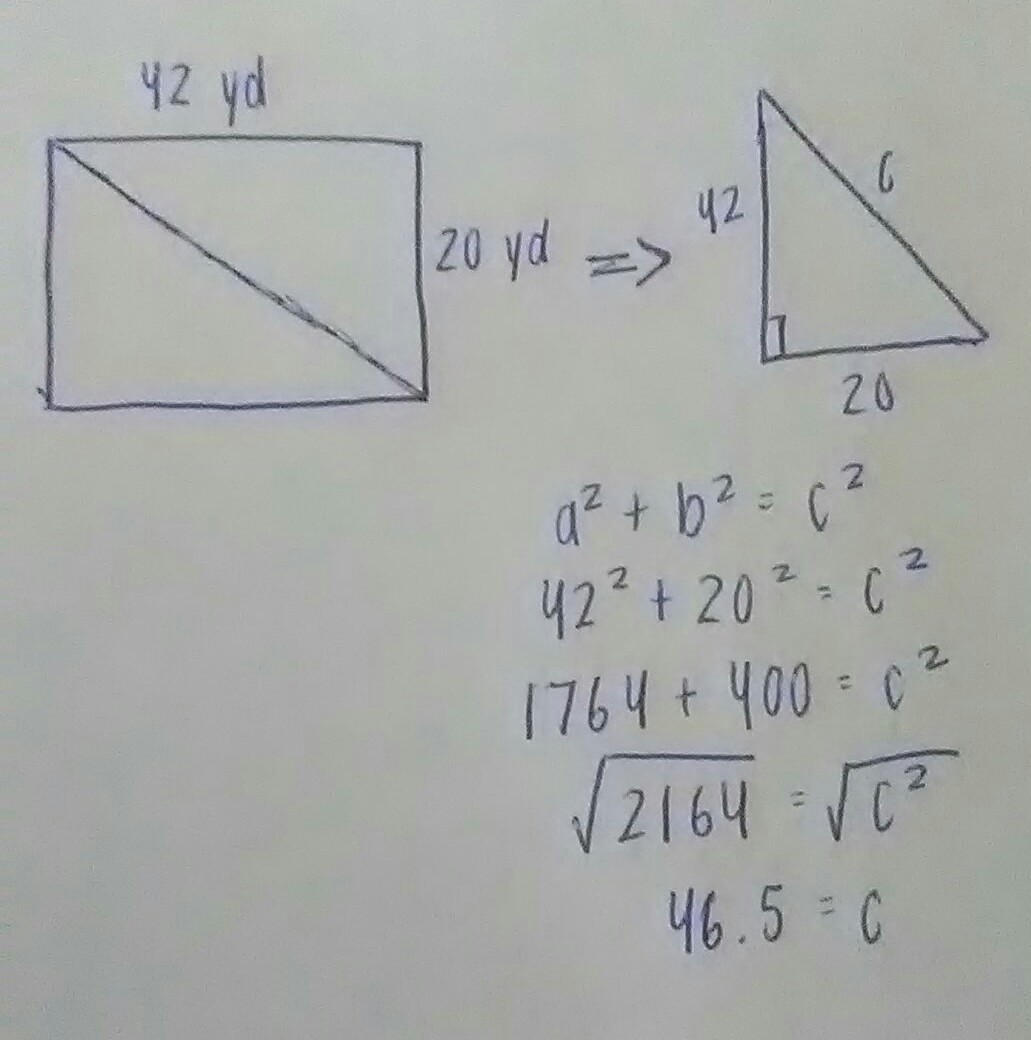 42 yd
20 yd => 42 c
20
a² + b² = c²
42² + 20² = c²
1764 + 400 = c²
√2164 = √c²
46.5 = c